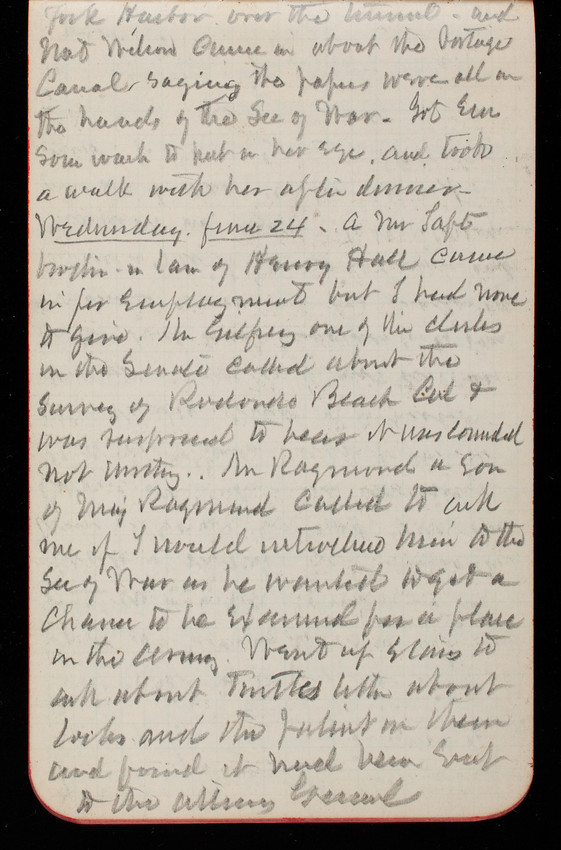 York Harbor over the tunnel - and
Nat Wilson came in about the Portage
Canal saying the papers were all in
the hands of the Sec of War - Got Em
some wash to put in her eye, and took
a walk with her after dinner -
Wednesday. June 24. A Mr Taft
brother in law of Henry Hall came
in for employment but I had none
to give. Mr Gilfrey one of the clerks
in the Senate called about the
Survey of Redondo Beach Cal &
was surprised to hear it was
not . . Mr Raymond a son
of Maj Raymond called to ask
me if I would introduce him to the
Sec of War as he wanted to get a
chance to be examined for a place
in the army. Went up stairs to
ask about Tuttles letter about
locks and the patent on them
and found it had been sent
to the attorney General